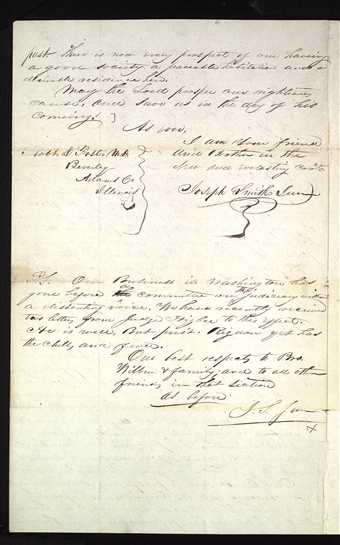 past. There is now every prospect of our having
a good society, a peaceable habitation and a
desirable residence here.
May the Lord prosper our righteous
cause, and save us in the day of his
coming.]
As ever,
I am Your friend
And Brother in the
New and everlasting
Joseph Smith Jun
Robt. D Foster M.D.
Beverly
Adams Co
Illinois
P.S. Our Business in Washington has
gone before the committee on Judiciary without
a dissenting voice. We have recently received
two letters from Judge Higbee to this effect.
He is well, But prest. Rigdon yet has
the chills and fever.
Our best respects to Bro.
Wilber & family, and to all other
friends in that section
As before
J. S. Jun